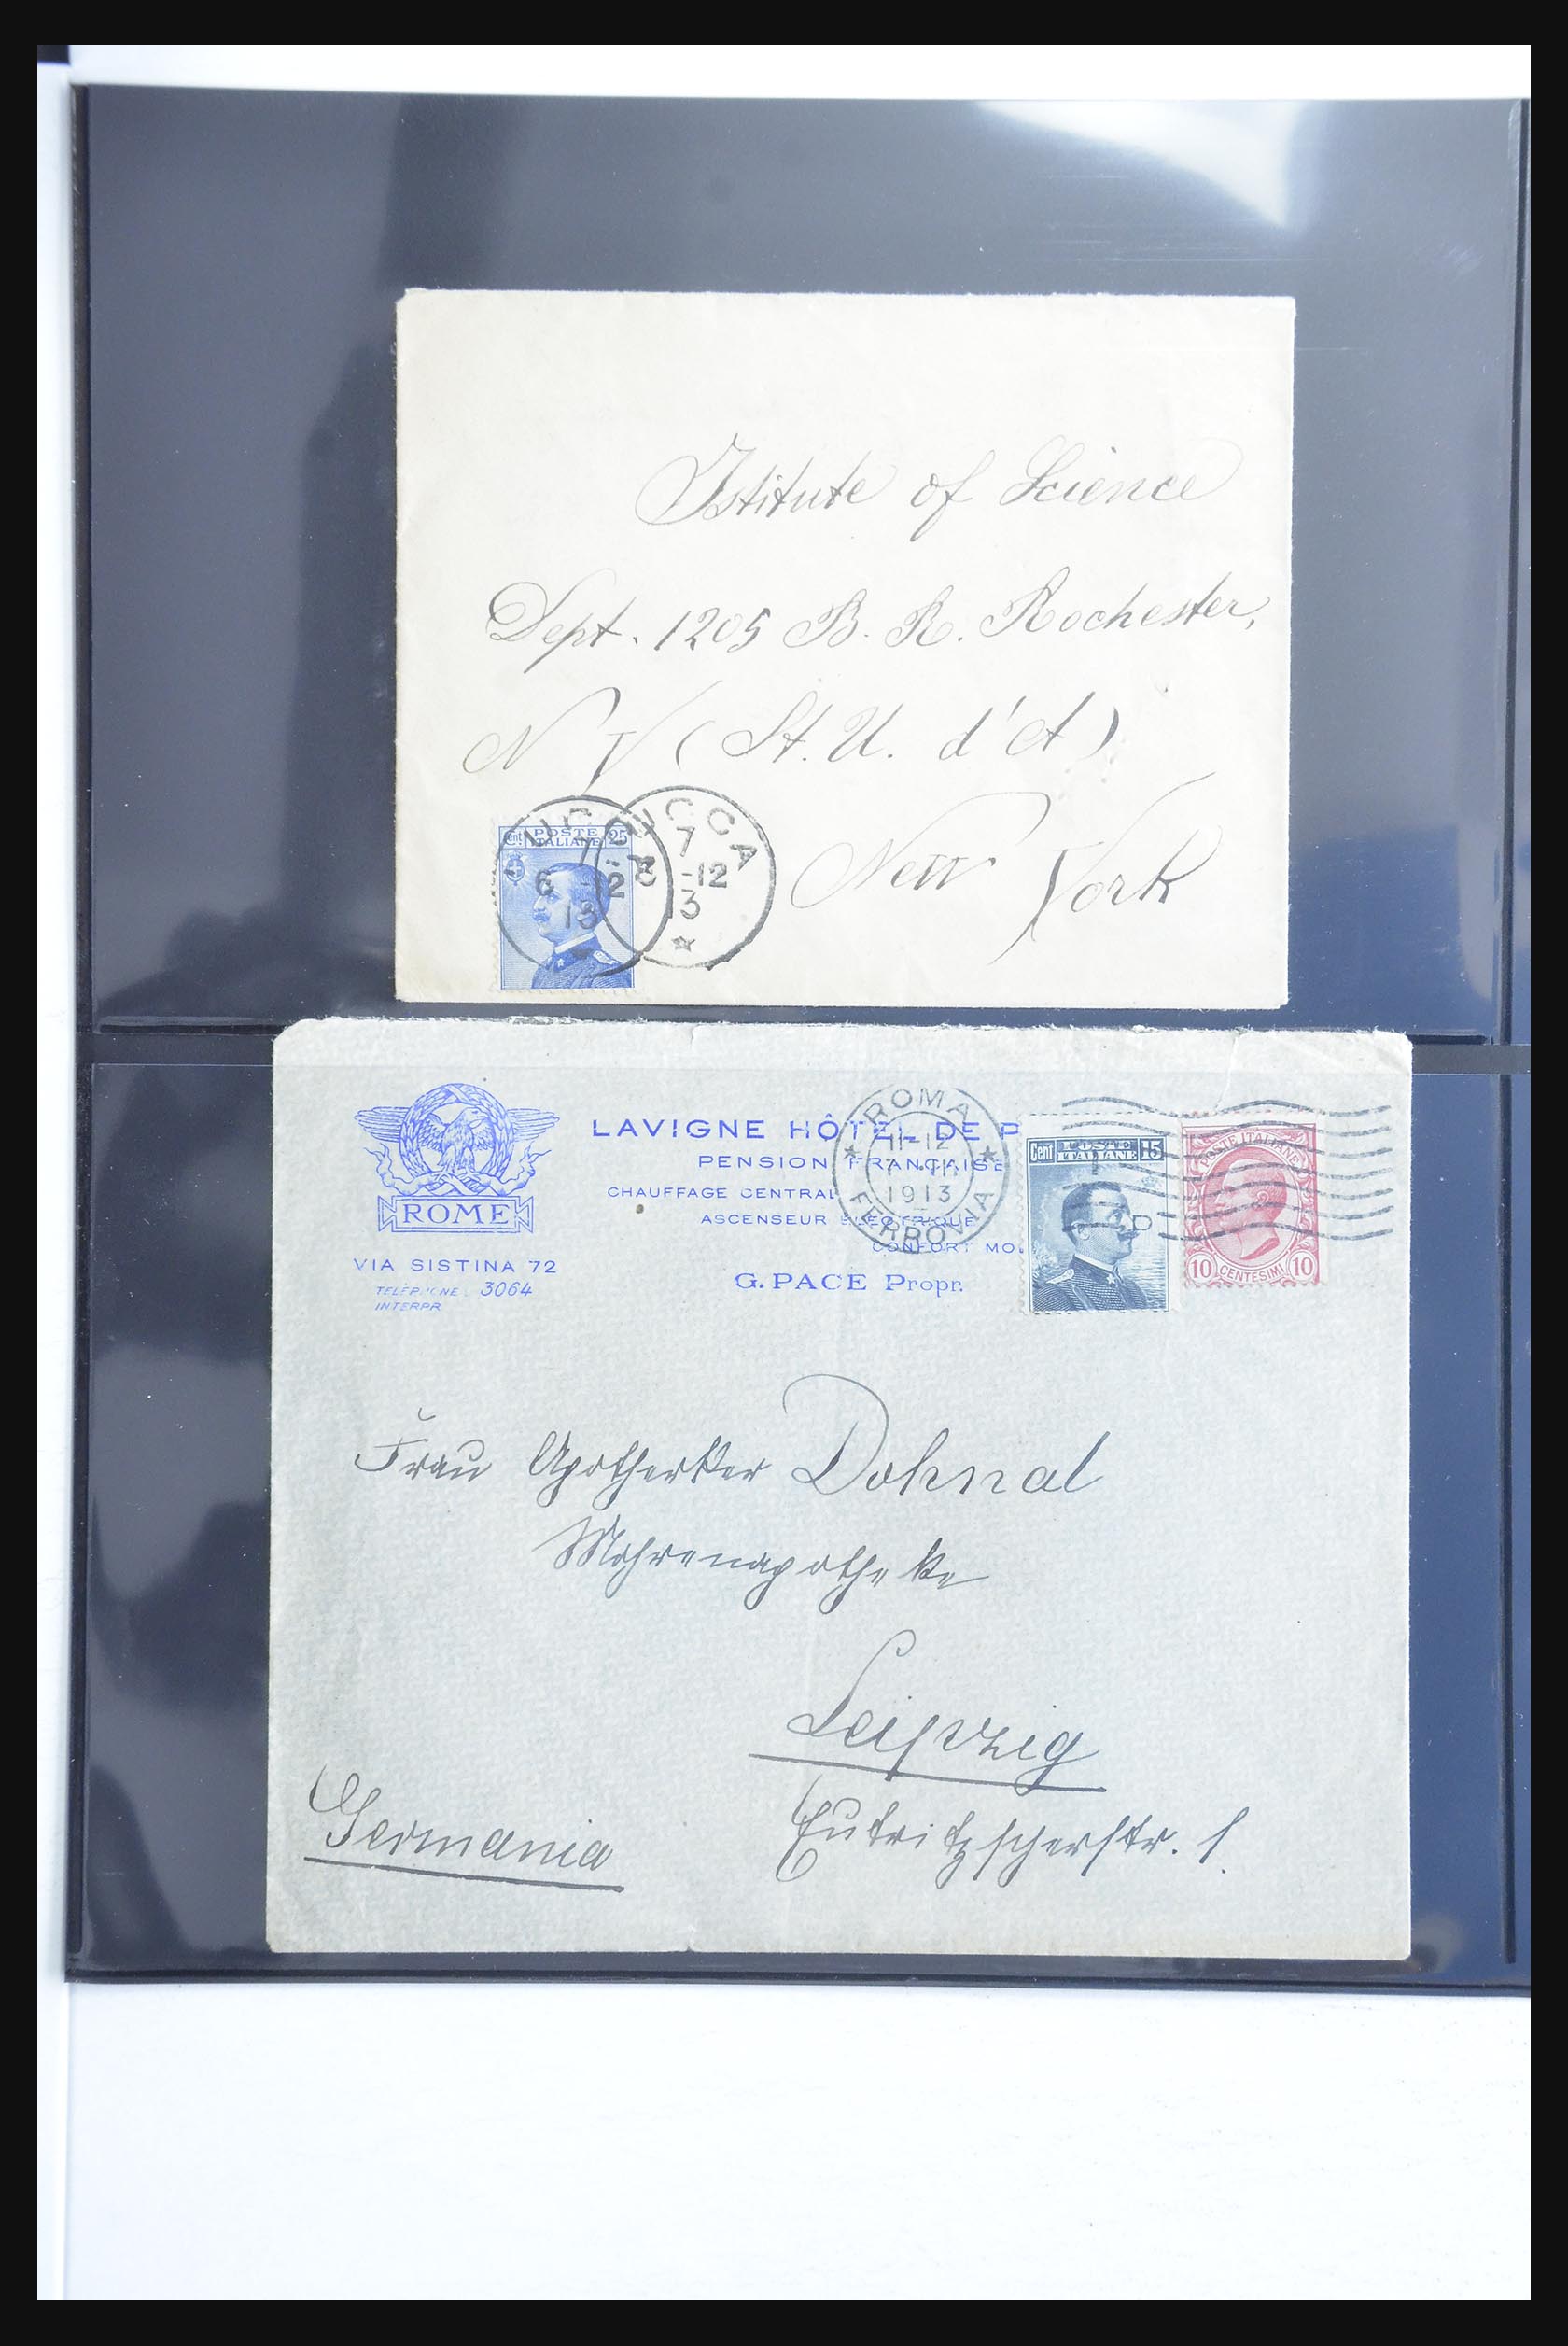 Istitute of Science
Dept. 1205 B. R. Rochester,
N Y (St. U. d'A)
New York
Cent POSTE ITALIANE 25
LUCCA
6 -12
13
LUCCA
7
-12
13
ROME
VIA SISTINA 72
TELEPHONE: 3064
INTERPR.
LAVIGNE HÔTEL DE P
PENSION FRANÇAISE
CHAUFFAGE CENTRAL
ASCENSEUR ELECTRIQUE
CONFORT MO
G. PACE Propr.
ROMA
11-12
1913
FERROVIA
Cent POSTE ITALIANE 15
POSTE ITALIANE
10 CENTESIMI 10
Frau Apotheker Dohnal
Mohrenapotheke
Leipzig
Germania
Eutritzscherstr. 1.